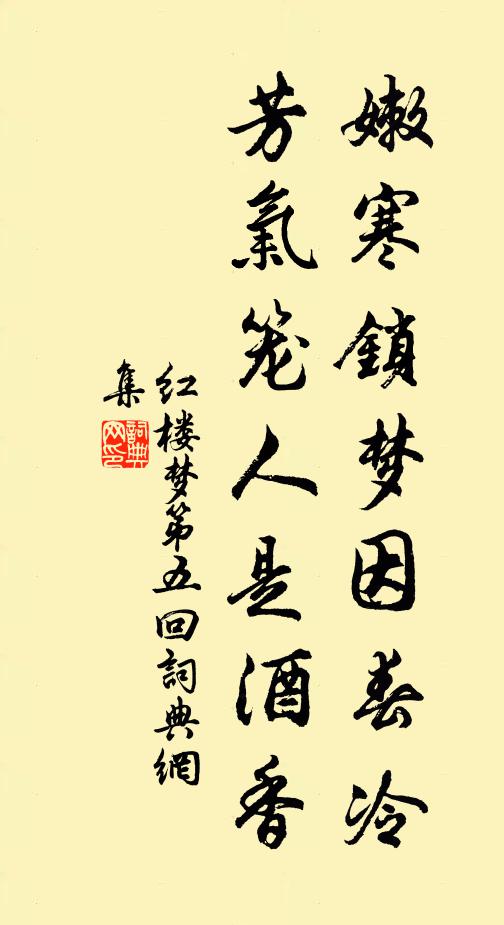 嫩寒鎖梦因春冷
芳氣笼人是酒香
红楼梦第五回詞典網
集
詞典网印